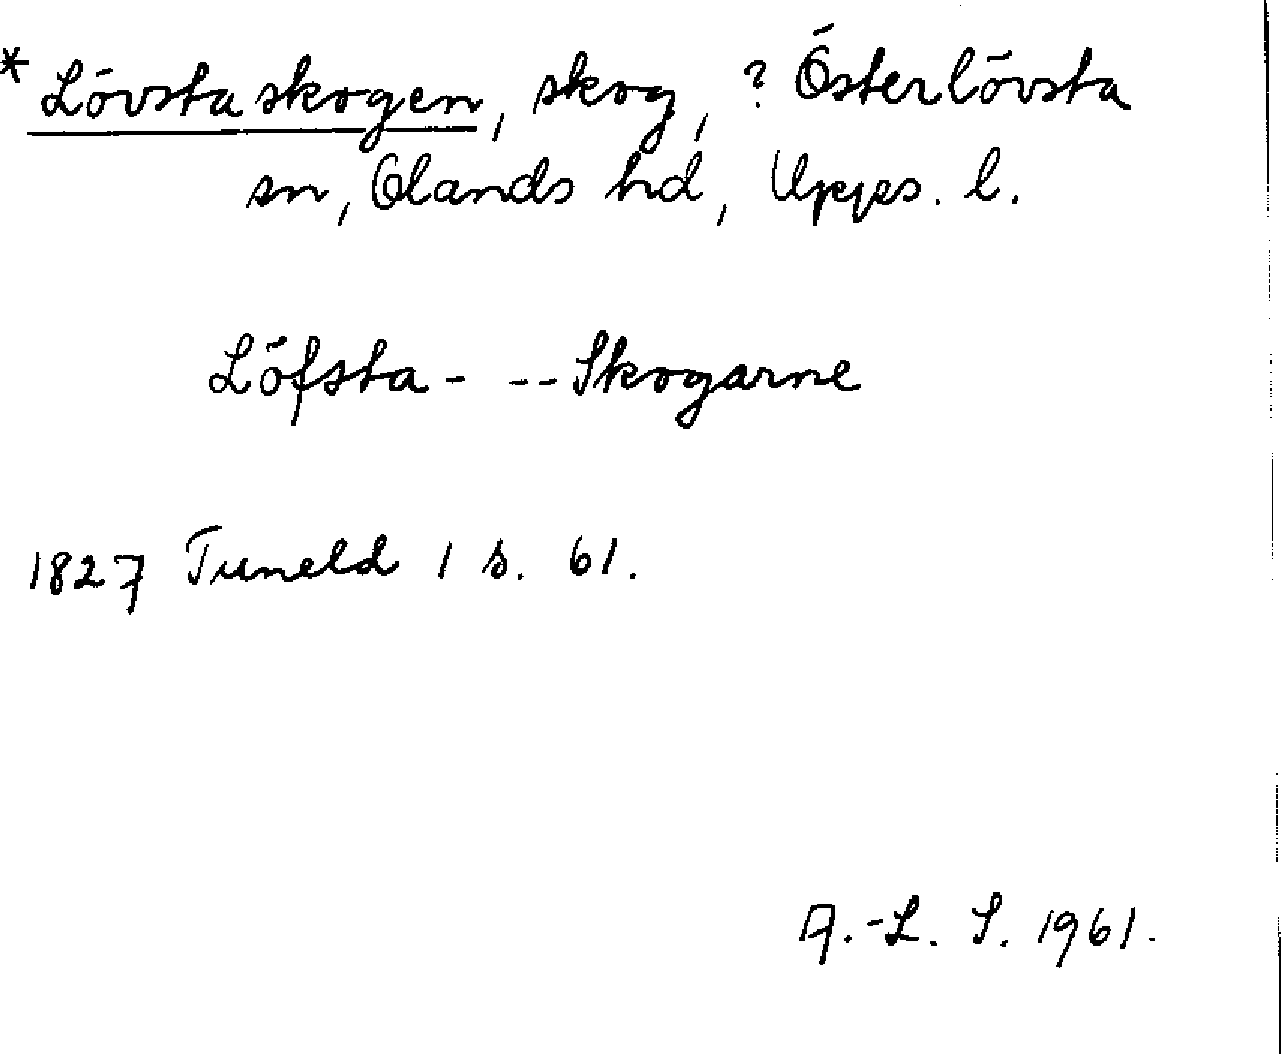 * Lövstaskogen, skog, ? Österlövsta
sn, Olands hd, Upps. l.
Löfsta- --Skogarne
1827 Tuneld 1 s. 61.
A.-L. S. 1961.